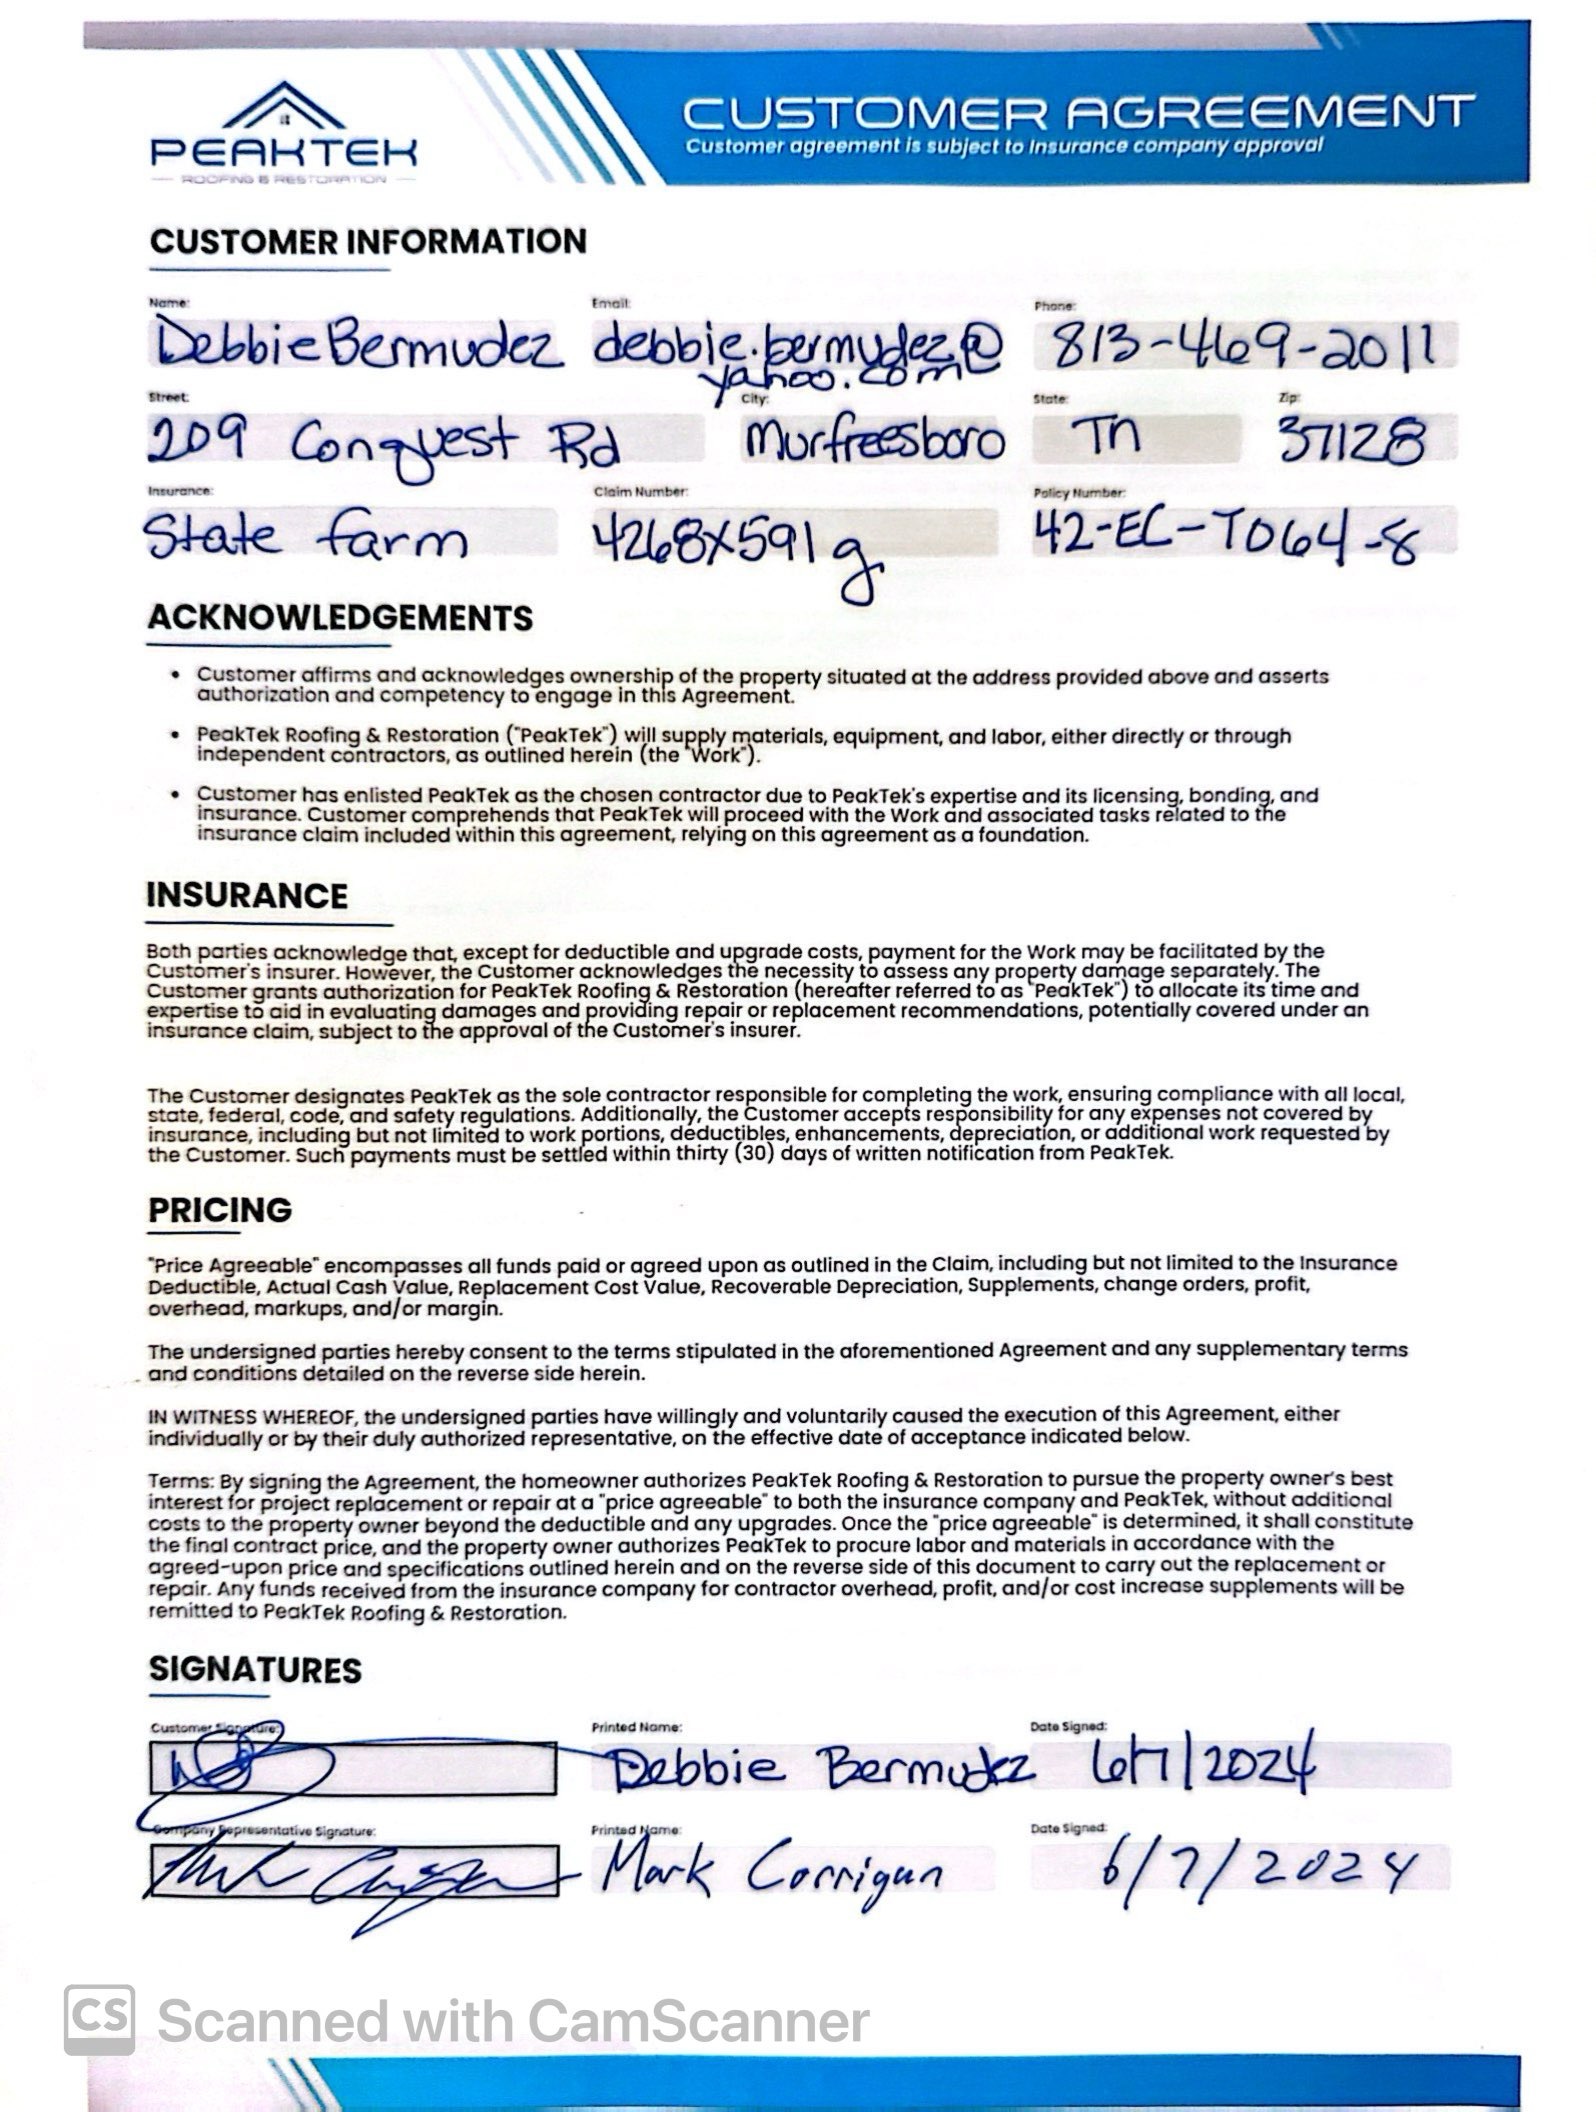 PEAKTEK
ROOFING & RESTORATION
CUSTOMER AGREEMENT
Customer agreement is subject to insurance company approval
CUSTOMER INFORMATION
Name: Email: Phone:
Debbie Bermudez debbie.bermudez@ 813-469-2011
yahoo.com
Street: City: State: Zip:
209 Conquest Rd Murfreesboro Tn 37128
Insurance: Claim Number: Policy Number:
State farm 4268X591g 42-EC-T064-8
ACKNOWLEDGEMENTS
• Customer affirms and acknowledges ownership of the property situated at the address provided above and asserts
authorization and competency to engage in this Agreement.
• PeakTek Roofing & Restoration ("PeakTek") will supply materials, equipment, and labor, either directly or through
independent contractors, as outlined herein (the "Work").
• Customer has enlisted PeakTek as the chosen contractor due to PeakTek's expertise and its licensing, bonding, and
insurance. Customer comprehends that PeakTek will proceed with the Work and associated tasks related to the
insurance claim included within this agreement, relying on this agreement as a foundation.
INSURANCE
Both parties acknowledge that, except for deductible and upgrade costs, payment for the Work may be facilitated by the
Customer's insurer. However, the Customer acknowledges the necessity to assess any property damage separately. The
Customer grants authorization for PeakTek Roofing & Restoration (hereafter referred to as "PeakTek") to allocate its time and
expertise to aid in evaluating damages and providing repair or replacement recommendations, potentially covered under an
insurance claim, subject to the approval of the Customer's insurer.
The Customer designates PeakTek as the sole contractor responsible for completing the work, ensuring compliance with all local,
state, federal, code, and safety regulations. Additionally, the Customer accepts responsibility for any expenses not covered by
insurance, including but not limited to work portions, deductibles, enhancements, depreciation, or additional work requested by
the Customer. Such payments must be settled within thirty (30) days of written notification from PeakTek.
PRICING
"Price Agreeable" encompasses all funds paid or agreed upon as outlined in the Claim, including but not limited to the Insurance
Deductible, Actual Cash Value, Replacement Cost Value, Recoverable Depreciation, Supplements, change orders, profit,
overhead, markups, and/or margin.
The undersigned parties hereby consent to the terms stipulated in the aforementioned Agreement and any supplementary terms
and conditions detailed on the reverse side herein.
IN WITNESS WHEREOF, the undersigned parties have willingly and voluntarily caused the execution of this Agreement, either
individually or by their duly authorized representative, on the effective date of acceptance indicated below.
Terms: By signing the Agreement, the homeowner authorizes PeakTek Roofing & Restoration to pursue the property owner's best
interest for project replacement or repair at a "price agreeable" to both the insurance company and PeakTek, without additional
costs to the property owner beyond the deductible and any upgrades. Once the "price agreeable" is determined, it shall constitute
the final contract price, and the property owner authorizes PeakTek to procure labor and materials in accordance with the
agreed-upon price and specifications outlined herein and on the reverse side of this document to carry out the replacement or
repair. Any funds received from the insurance company for contractor overhead, profit, and/or cost increase supplements will be
remitted to PeakTek Roofing & Restoration.
SIGNATURES
Customer Signature: Printed Name: Date Signed:
Debbie Bermudez 6/7/2024
Company Representative Signature: Printed Name: Date Signed:
Mark Corrigan 6/7/2024
CS Scanned with CamScanner